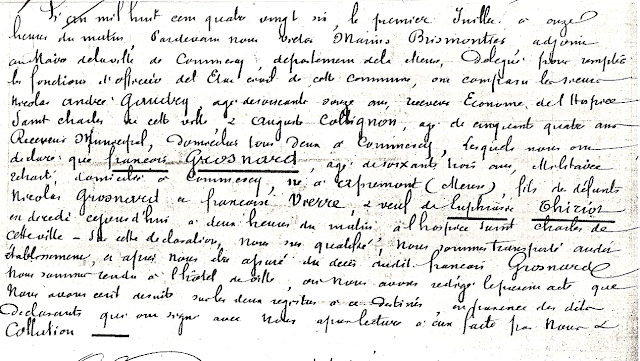 L'an mil huit cent quatre vingt six, le premier Juillet à onze
heures du matin, Pardevant nous Marius Brismontier adjoint
au Maire de la ville de Commercy, département de la Meuse, Délégué pour remplir
les fonctions d'officier de l'Etat civil de cette commune, ont comparu les sieurs
Nicolas andré Gaudrey, agé de soixante ans, receveur Econome de l'Hospice
Saint Charles de cette ville & auguste Collignon, agé de cinquante quatre ans
Receveur Municipal, Domiciliés tous deux à Commercy, lesquels nous ont
declaré que francois Grosnard, agé de soixante trois ans, Militaire
retraité domicilié à Commercy, né à apremont (Meuse), fils de défunts
Nicolas Grosnard et françoise Vierre, & veuf de Euphrasie Thiriot
est decedé cejourd'hui à deux heures du matin à l'hospice Saint Charles de
cette ville - Sur cette déclaration, Nous sus qualifié, Nous sommes transporté audit
établissement, et après nous être assuré du decès dudit francois Grosnard
Nous sommes rendu à l'hôtel de ville, où nous avons rédigé le présent acte que
Nous avons écrit desuite sur les deux registres à ce destinés, en présence des dits
Declarants qui ont signé avec Nous après lecture à eux faite par Nous &
Collation